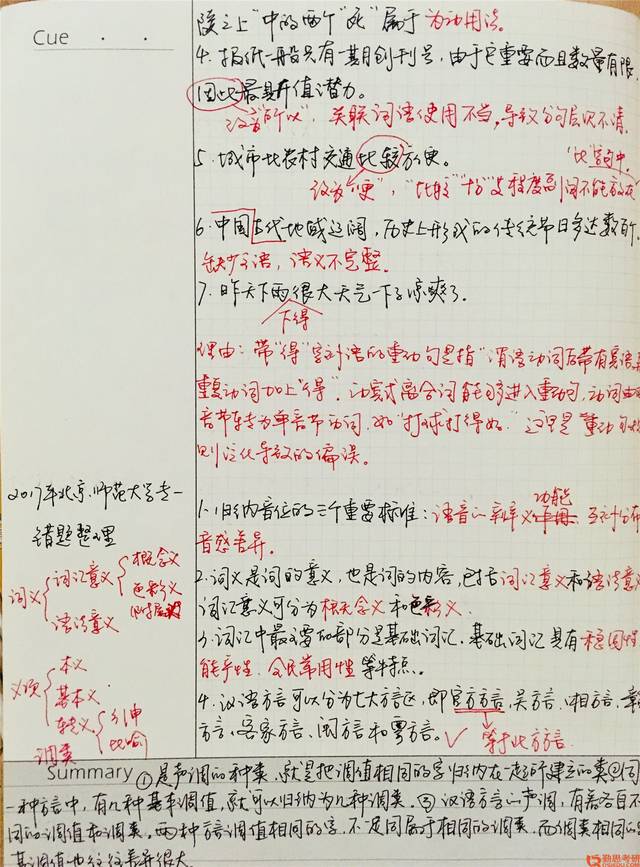 Cue
陵之上"中的两个"死"属于为动用法。
4.报纸一般只有一期创刊号,由于它重要而且数量有限,
因此最具升值潜力。
没有"所以",关联词语使用不当,导致分句层次不清。
5.城市比农村交通比较方便。
"比"字句中,
没有"更","比较""十分"等程度副词不能放在
6.中国古代地域辽阔,历史上形成的传统节日多达数百个
缺少主语,语义不完整。
7.昨天下雨很大天气一下子凉爽了。
下得
理由:带"得"字补语的重动句是指"谓语动词后带有宾语
重复动词加上"得"。动宾式离合词能够进入重动句,动词由双
音节转为单音节动词,如"打球打得好"这里是重动句规
则泛化导致的偏误。
2017年北京师范大学专一
错题整理
词义 词汇意义 概念义
色彩义
(附属义)
语法意义
义项 本义
基本义
转义 引申
比喻
1.归纳音位的三个重要标准:语音的辨义功能、互补分布
音感差异。
2.词义是词的意义,也是词的内容,包括词汇意义和语法意义
词汇意义可分为概念义和色彩义。
3.词汇中最主要的部分是基础词汇,基础词汇具有稳固性
能产性、全民常用性等特点。
4.汉语方言可以分为七大方言区,即官方方言、吴方言、湘方言、赣
方言、客家方言、闽方言和粤方言。
等于北方方言
调类
Summary ①是声调的种类,就是把调值相同的字归纳在一起所建立的类②同
一种方言中,有几种基本调值,就可以归纳为几种调类。③汉语方言的声调,有着各自不
同的调值和调类。两种方言调值相同的字,不一定同属于相同的调类,而调类相同的字
其调值也往往差异很大。
勤思考研